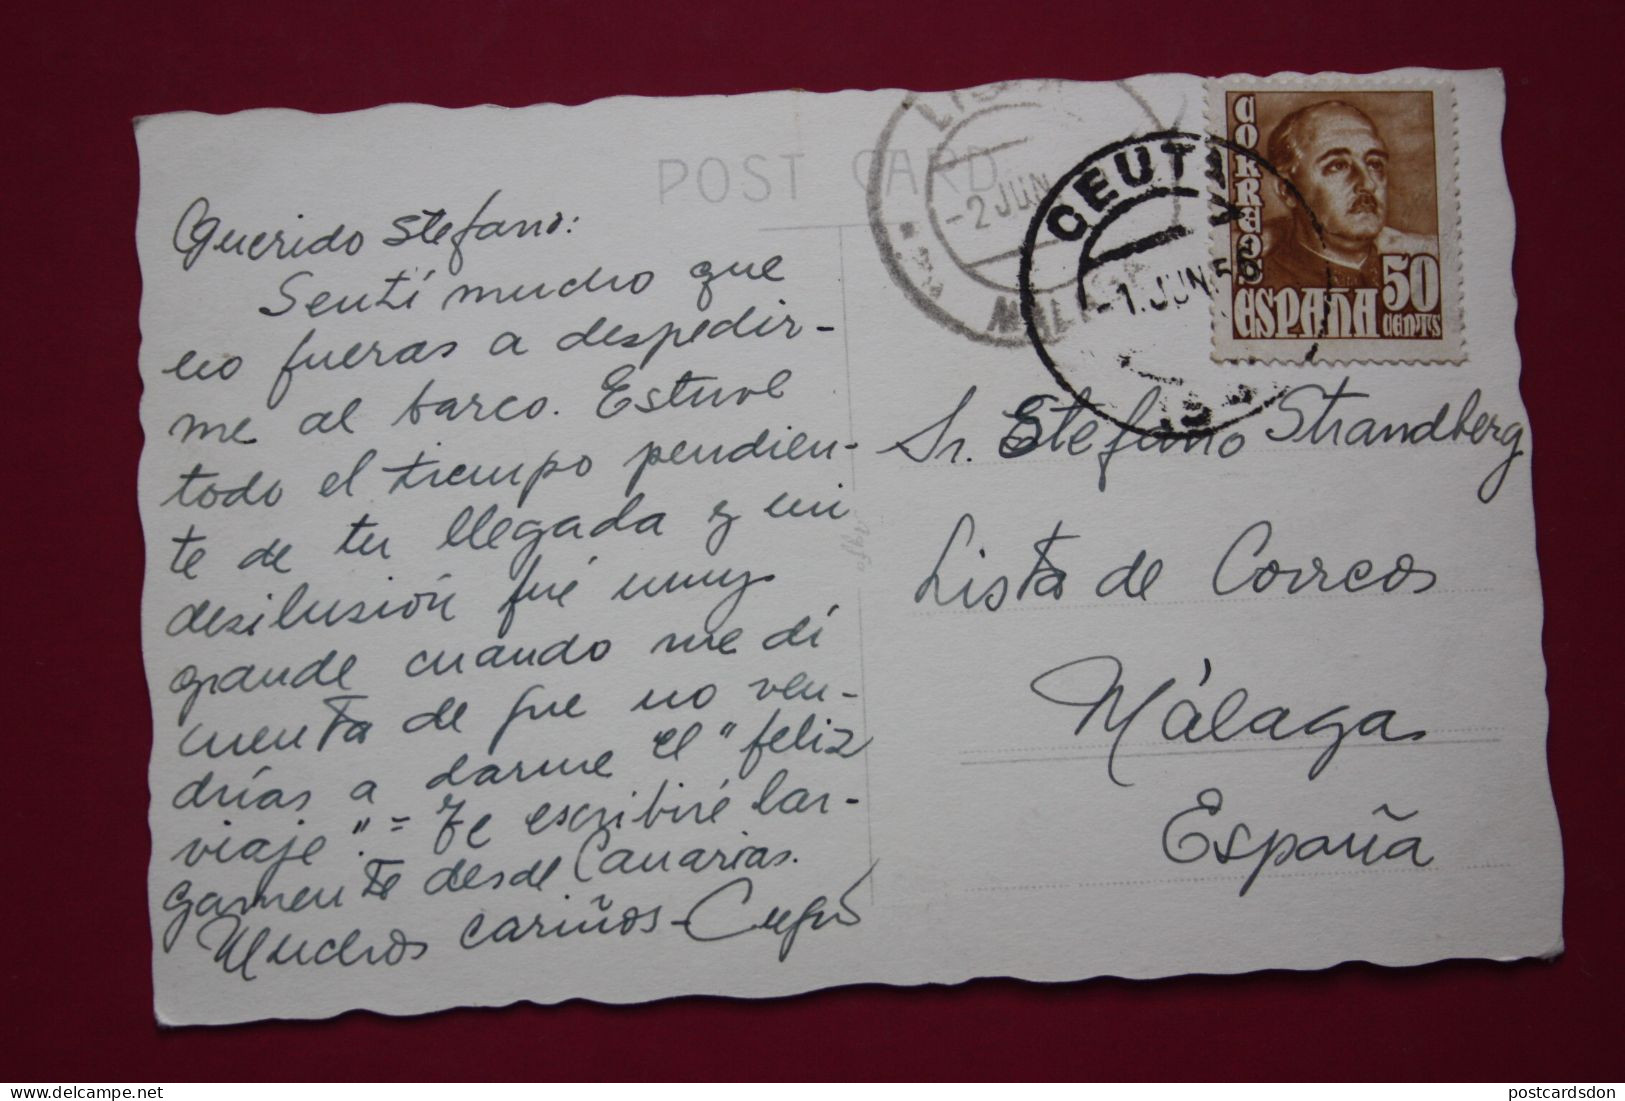 POST CARD
Querido Stefano:
Sentí mucho que
no fueras a despedir-
me al barco. Estuve
todo el tiempo pendien-
te de tu llegada y mi
desilusión fué muy
grande cuando me dí
cuenta de que no ven-
drías a darme el "feliz
viaje". = Te escribiré lar-
gamente desde Canarias.
Muchos cariños -
MALAGA
-2 JUN
CEUTA
-1.JUN 56
CORREOS
ESPAÑA
50
CENTS
Sr. Stefano Strandberg
Lista de Correos
Málaga
España
postcardsdon